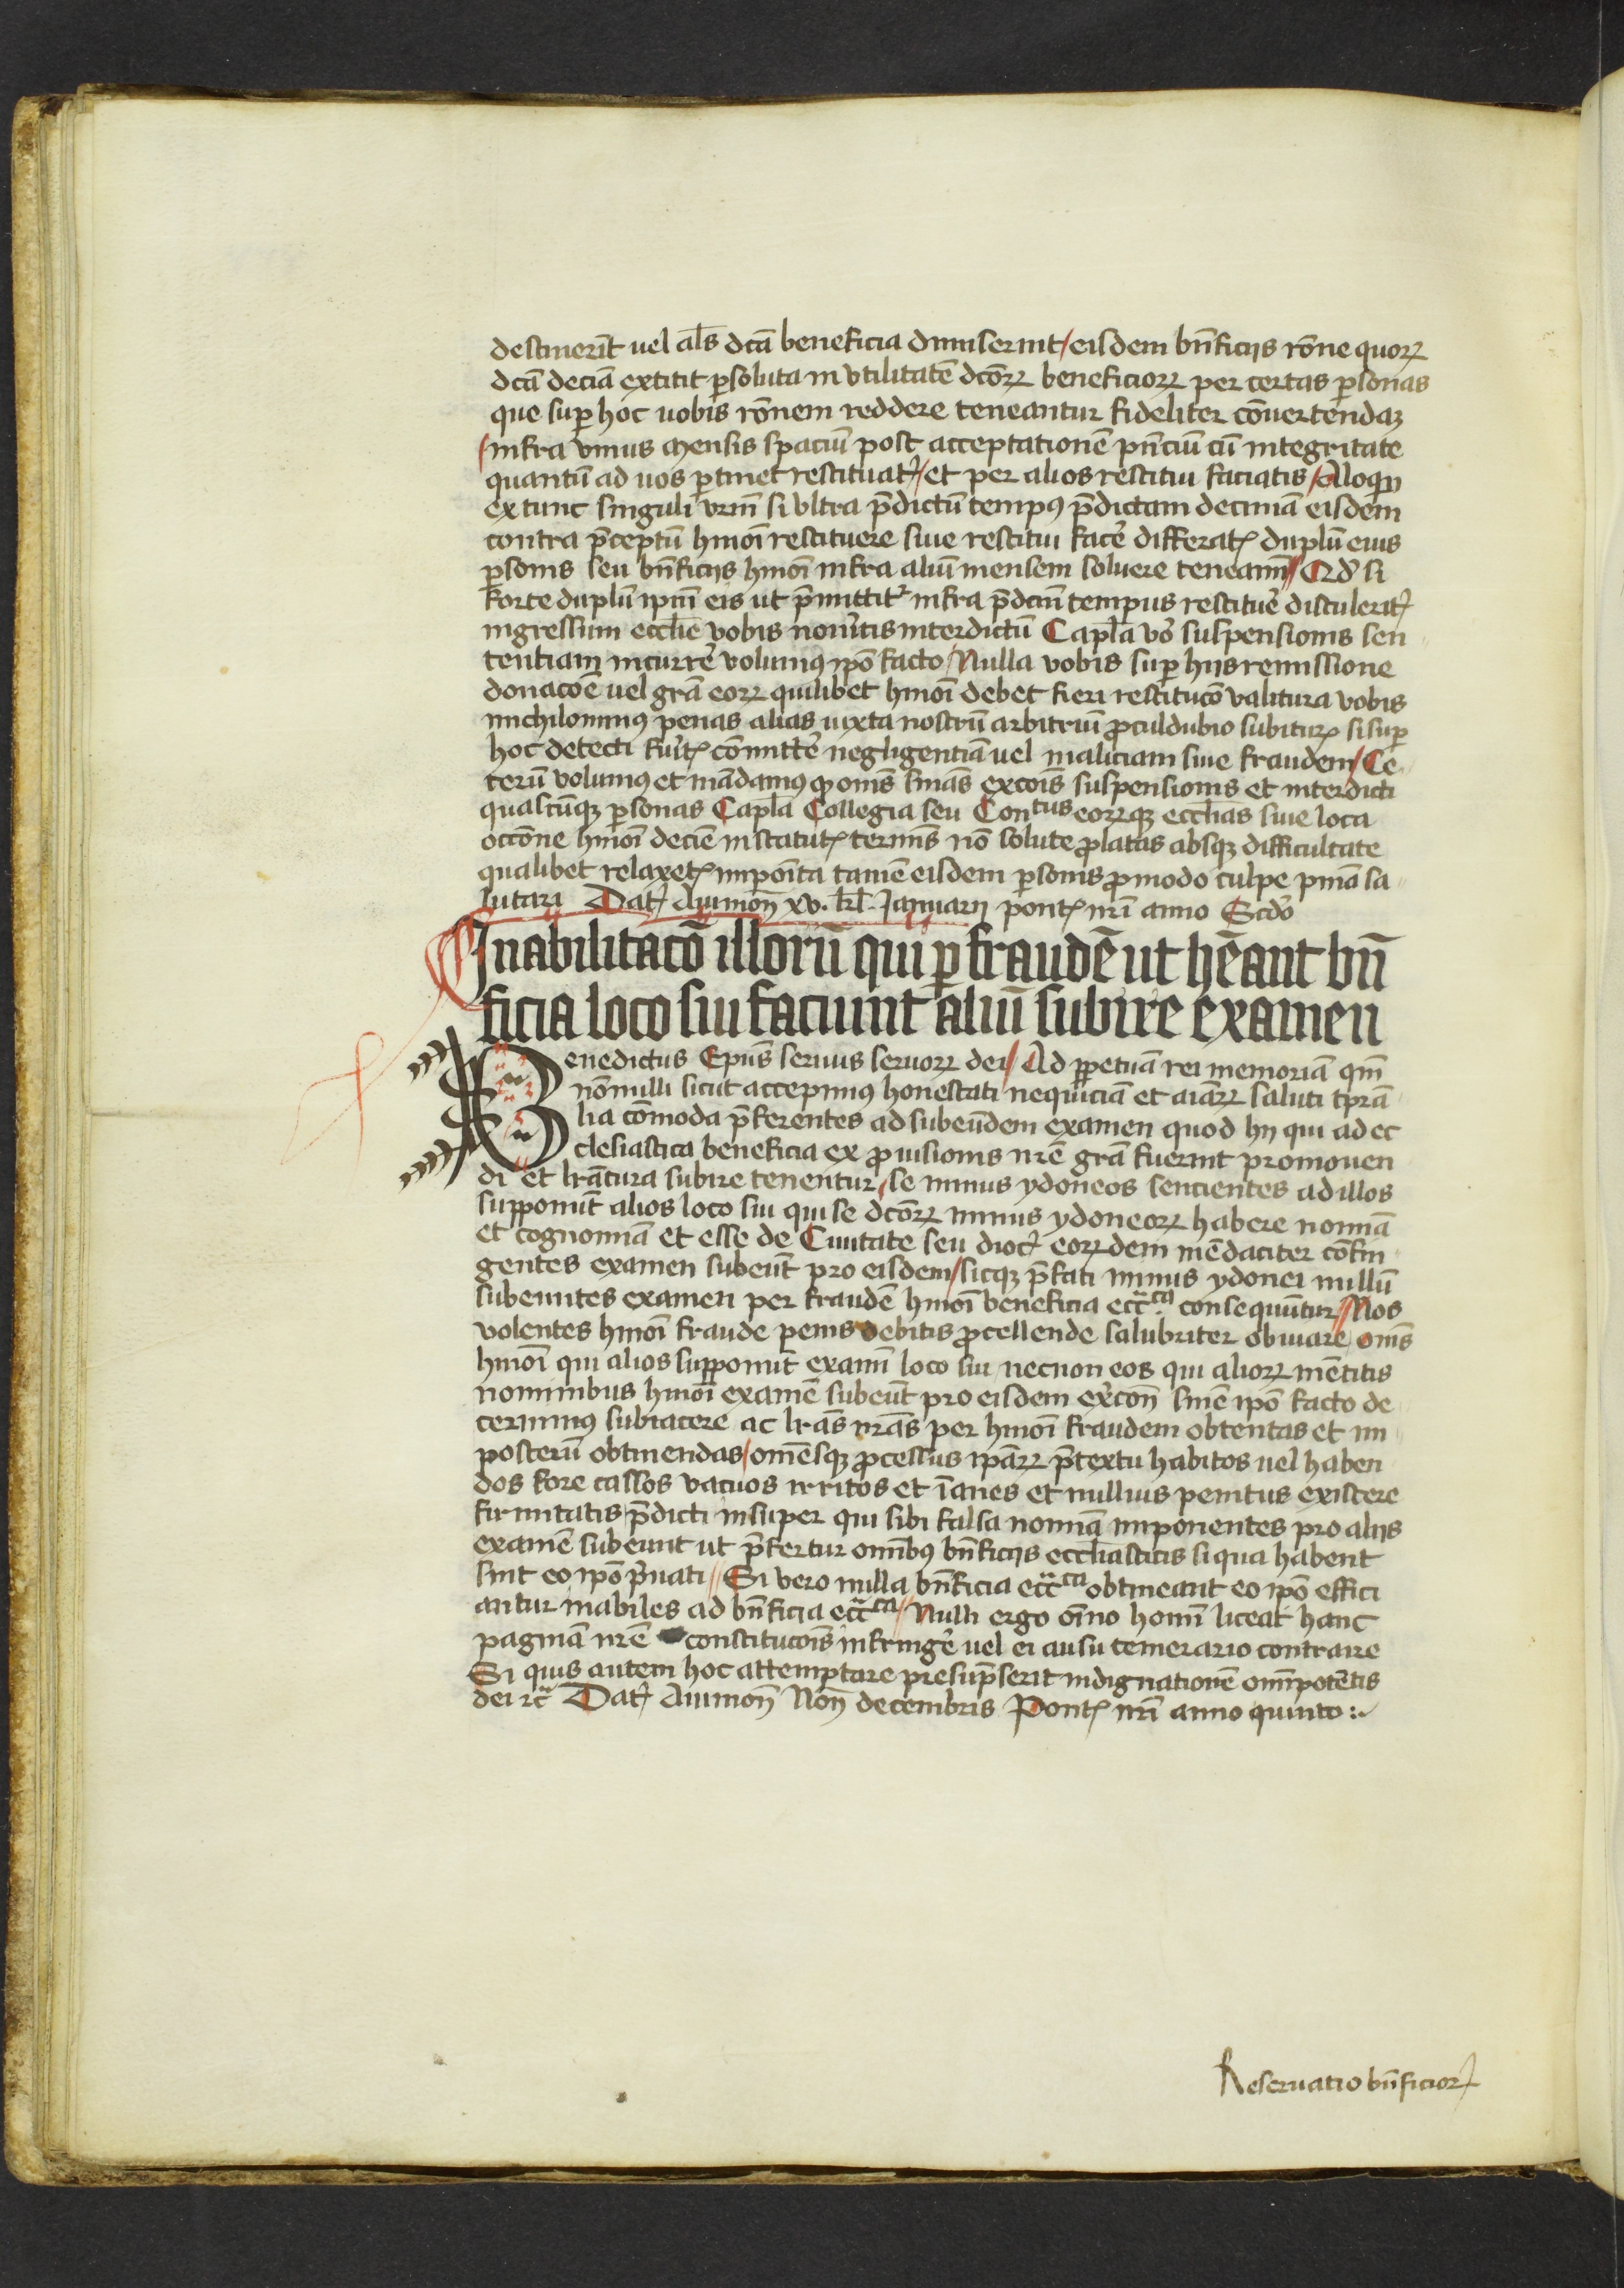 destinerīt uel al̄s dcā beneficia dimiserint / eisdem bn̄ficijs rōne quorꝝ
dcā deciā extitit ꝑsoluta in vtilitatē dcōrꝝ beneficiorꝝ per certas ꝑsonas
que suꝑ hoc uobis rōnem reddere teneantur fideliter cōuertendaꝫ
/ infra vnius mensis spaciū post acceptationē pn̄ciū cū integritate
quantū ad uos ꝑtinet restituatꝭ / et per alios restitui faciatis / Alioqn̄
extunc singuli vrm̄ si vltra p̄dictū tempꝯ p̄dictam decimā eisdem
contra p̄ceptū hmōi restituere siue restitui facē differatꝭ duplū eius
ꝑsonis seu bn̄ficijs hmōi infra aliū mensem soluere teneamī // Qd̄ si
forte duplū ipm̄ eis ut p̄mittit᷑ infra p̄dcm̄ tempus restituē distuleritꝭ
ingressum eccl̄ie vobis nou̾itis interdictū Capl̄a vō suspensionis sen
tentiam incurrē volumꝯ ipō facto / Nulla vobis suꝑ hijs remissione
donacōe uel grā eorꝝ quilibet hmōi debet fieri restitucō valitura vobis
nichilominꝯ penas alias iuxta nostrū arbitriū ꝓculdubio subiturꝭ si suꝑ
hoc detecti fu̾itꝭ cōmittē negligentiā uel maliciam siue fraudem / Ce
terū volumꝯ et mādamꝯ ꝙ om̄s sn̄ias excōis suspensionis et interdicti
quascūqꝫ ꝑsonas Capl̄a Collegia seu Conᵗᵘˢ eorꝝqꝫ eccl̄ias siue loca
occōne hmōi decīe in statutꝭ termīs nō solute ꝓlatas absqꝫ difficultate
qualibet relaxetꝭ impoīta tamē eisdem ꝑsonis ꝓ modo culpe pniā sa
lutari Datꝭ Auinion̄ xv. kl̄. Januarij pontꝭ nrī anno Scd̄o
Inabilitacō illorū qui ꝑ fraudē ut hēant bn̄
ficia loco sui faciunt aliū subire examen
Benedictus Ep̄us seruus seruorꝝ dei / Ad ꝑpetuā rei memoriā qm̄
nōnulli sicut accepimꝯ honestati nequiciā et aīarꝝ saluti tp̄ra
lia cōmoda p̄ferentes ad subeūdem examen quod hij qui ad ec
clesiastica beneficia ex ꝓuisionis nrē grā fuerint promouen
di et lrātura subire tenentur / se minus ydoneos sencientes ad illos
supponūt alios loco sui qui se dcōrꝝ minus ydoneorꝝ habere nomīa
et cognomīa et esse de Ciuitate seu diocꝭ eorꝝdem mēdaciter cōfin
gentes examen subeūt pro eisdem / sicqꝫ p̄fati minus ydonei nullū
subeuntes examen per fraudē hmōi beneficia ecc̄ᶜᵃ consequūtur // Nos
volentes hmōi fraude penis debitis ꝓcellende salubriter obuiare / om̄s
hmōi qui alios supponūt examī loco sui necnon eos qui aliorꝝ mētitis
nominibus hmōi examē subeūt pro eisdem ex̄con̄ sn̄ie ipō facto de
cernimꝯ subiacere ac lrās nrās per hmōi fraudem obtentas et im
posterū obtinendas / omēsqꝫ ꝓcessus ipārꝝ p̄textu habitos uel haben
dos fore cassos vacuos irritos et īanes et nullius penitus existere
firmitatis p̄dicti insuper qui sibi falsa nomīa imponentes pro alijs
examē subeunt ut p̄fertur om̄ibꝯ bn̄ficijs eccl̄iasticis si qua habent
sint eo ipō p̄uati // Si vero nulla bn̄ficia ecc̄ᶜᵃ obtineant eo ipō effici
antur inabiles ad bn̄ficia ecc̄ᶜᵃ // Nulli ergo oīno homī liceat hanc
paginā nrē constitucōis infringē uel ei ausu temerario contraire
Si quis autem hoc attemptare presūpserit indignationē om̄ipotētis
dei ⁊c̄ Datꝭ Auinion̄ Non̄ decembris Pontꝭ nrī anno quinto :.
Reseruatio bn̄ficiorꝭ